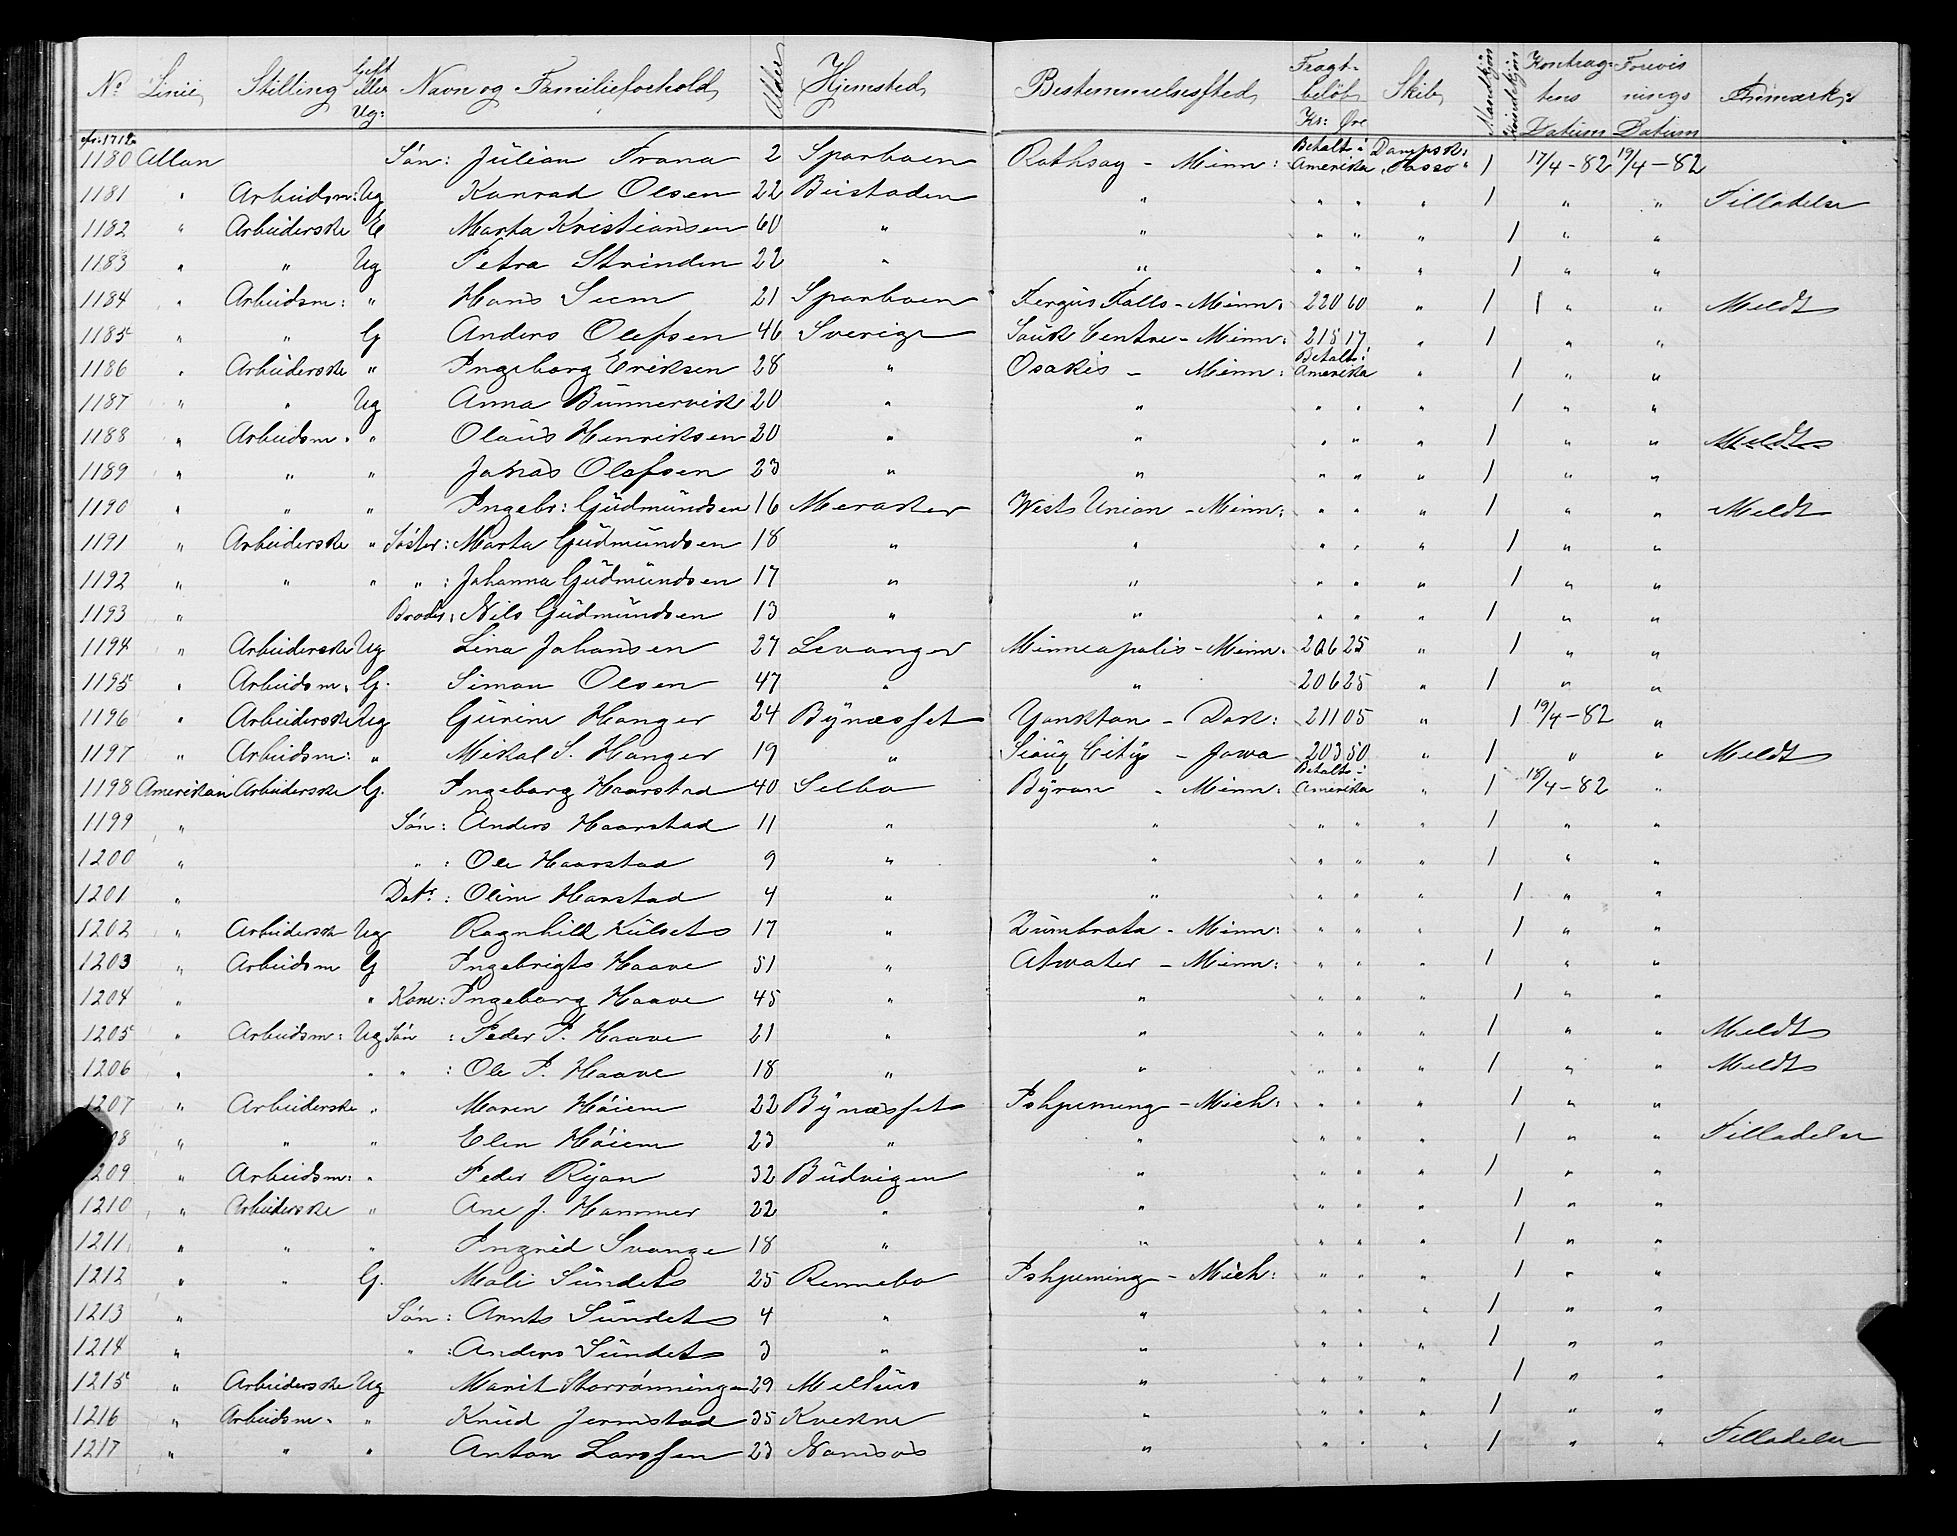 No Linie Stilling Gift eller Ug: Navn og Familieforhold Alder Hjemsted Bestemmelsessted Fragtbeløb Kr: Øre Skib Mandkjön Kvindekjön Kontraktens Datum Forevisnings Datum Anmærk:
1180 Allan Sön: Julian Trana 2 Sparboen Rothsay - Minn: Betalt i Amerika Dampsk: "Tasso" 1 17/4-82 19/4-82
1181 " Arbeidsm: Ug Konrad Olsen 22 Beistaden " " " " 1 " " Tilladelse
1182 " Arbeiderske E Marta Kristiansen 60 " " " " " 1 " "
1183 " " Ug Petra Strinden 22 " " " " " 1 " "
1184 " Arbeidsm: " Hans Seem 21 Sparboen Fergus Falls - Minn: 220 60 " 1 " " Meldt
1185 " " G Anders Olefsen 46 Sverige Sauk Centre - Minn: 215 17 " 1 " "
1186 " Arbeiderske " Ingeborg Eriksen 28 " Osakis - Minn: Betalt i Amerika " 1 " "
1187 " " Ug Anna Bunnervik 20 " " " " " 1 " "
1188 " Arbeidsm. " Olaus Henriksen 20 " " " " " 1 " " Meldt
1189 " " " Johas Olefsen 23 " " " " " 1 " "
1190 " " " Ingebr: Gudmundsen 16 Meraker West Union - Minn: " " " 1 " " Meldt
1191 " Arbeiderske " Söster: Marta Gudmundsen 18 " " " " " 1 " "
1192 " " " " : Johanna Gudmundsen 17 " " " " " 1 " "
1193 " Broder: Nils Gudmundsen 13 " " " " " 1 " "
1194 " Arbeiderske Ug Lina Johansen 27 Levanger Minneapolis - Minn. 206 25 " 1 " "
1195 " Arbeidsm. G. Simon Olsen 47 " " 206 25 1 " "
1196 " Arbeiderske Ug Gurine Hanger 24 Bynæsset Yankton - Dak: 211 05 " 1 19/4-82 "
1197 " Arbeidsm: " Mikal S. Hanger 19 " Sioux City - Jowa 203 50 " 1 " " Meldt
1198 Amerikan Arbeiderske G. Ingeborg Haarstad 40 Selbo Byron - Minn: Betalt i Amerika " 1 18/4-82 "
1199 " Sön: Anders Haarstad 11 " " " " " 1 " "
1200 " " : Ole Haarstad 9 " " " " " 1 " "
1201 " Dat: : Oline Harstad 4 " " " " " 1 " "
1202 " Arbeidersk Ug Ragnhild Kulset 17 " Zumbrota - Minn: " " " 1 " "
1203 " Arbeidsm G Ingebrigt Haave 51 " Atwater - Minn: " " " 1 " "
1204 " " Kone: Ingeborg Haave 45 " " " " " 1 " "
1205 " Arbeidsm: Ug Sön : Peder I. Haave 21 " " " " " 1 " " Meldt
1206 " " " : Ole I. Haave 18 " " " " " 1 " " Meldt
1207 " Arbeiderske " Maren Höiem 22 Bynæsset Ishpeming - Mich: " " " 1 " "
08 " " " Elen Höiem 23 " " " " " 1 " " Tilladelse
209 " Arbeidsm: " Peder Ryan 32 Budvigen " " " " 1 " "
1210 " Arbeiderske " Ane J. Hammer 22 " " " " " 1 " "
1211 " " " Ingrid Svange 18 " " " " " 1 " "
1212 " " G. Mali Sundet 25 Rennebo Ishpeming - Mich: " " " 1 " "
1213 " Sön: Arnt Sundet 4 " " " " " 1 " "
1214 " " : Anders Sundet 3 " " " " " 1 " "
1215 " Arbeiderske Ug Marit Storrönningen 29 Melhus " " " " 1 " "
1216 " Arbeidsm. " Knud Jermstad 35 Kvekne " " " " 1 " "
1217 " " " Anton Larssen 23 Namsos " " " " 1 " " Tilladelse